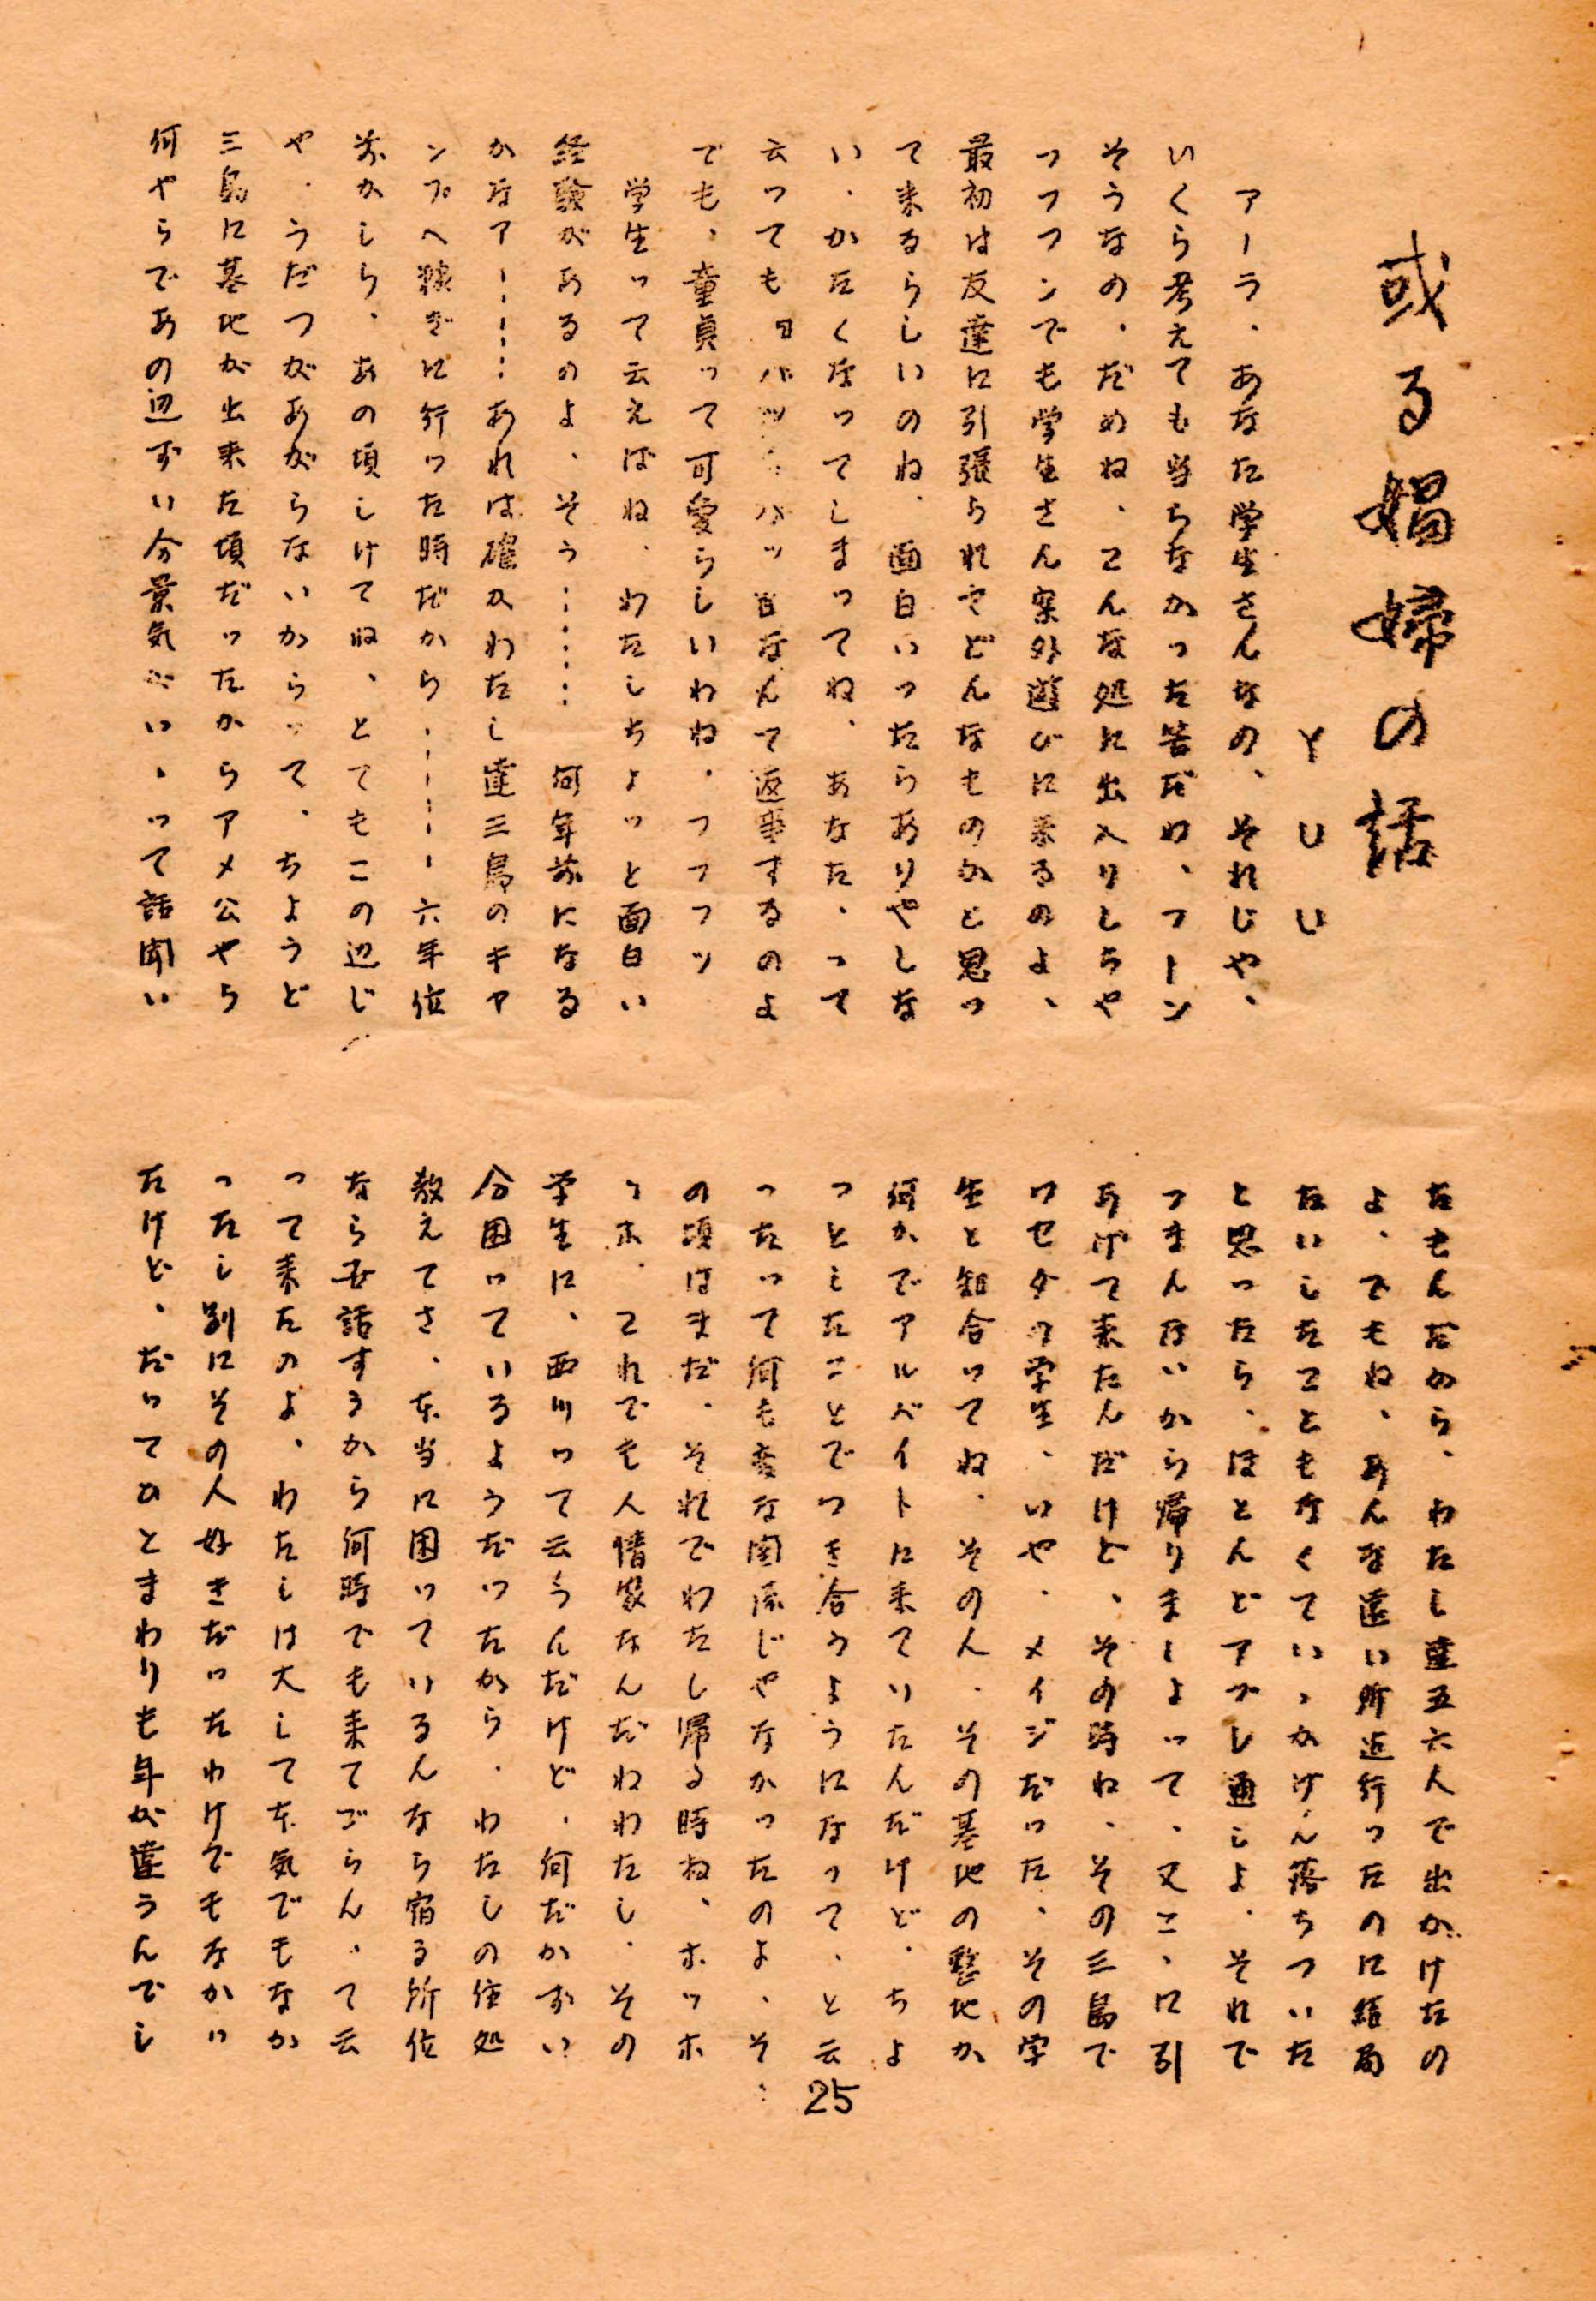 或る娼婦の話
としし
アーラ、あなた学生さんなの、それじや、
いくら考えても当らなかった筈だわ、フーン
そうなの、だめね、こんな処に出入りしちや
フフフンでも学生さん案外遊びに来るのよ、
最初は友達に引張られてどんなものかと思っ
て来るらしいのね、面白いったらありやしな
い、かたくなってしまってね、あなた、って
云っても ハッ ハッ なんて返事するのよ
でも、童貞って可愛らしいわね、フフフッ
学生って云えばね、わたしちよっと面白い
経験があるのよ、そう……… 何年前になる
かなアー……あれは確かわたし達三島のキア
ンプへ稼ぎに行った時だから………六年位
前かしら、あの頃しけてね、とてもこの辺じ
や、うだつがあがらないからって、ちようど
三島に基地が出来た頃だったからアメ公やら
何やらであの辺ずい分景気がいゝって話聞い
たもんだから、わたし達五六人で出かけたの
よ、でもね、あんな遠い所迄行ったのに結局
たいしたこともなくていゝかげん落ちついた
と思ったら、ほとんどアブレ通しよ、それで
つまんないから帰りましよって、又こゝに引
あげて来たんだけど、その時ね、その三島で
ワセダの学生、いや、メイジだった、その学
生と知合ってね、その人、その基地の整地か
何かでアルバイトに来ていたんだけど、ちよ
っとしたことでつき合うようになって、と云
ったって何も変な関係じやなかったのよ、そ
の頃はまだ、それでわたし帰る時ね、ホッホ
ッホ、これでも人情家なんだねわたし、その
学生に、西川って云うんだけど、何だかずい
分困っているようだったから、わたしの住処
教えてさ、本当に困っているんなら宿る所位
なら世話するから何時でも来てごらん、て云
って来たのよ、わたしは大して本気でもなか
ったし別にその人好きだったわけでもなかっ
たけど、だってひとまわりも年が違うんでし
25